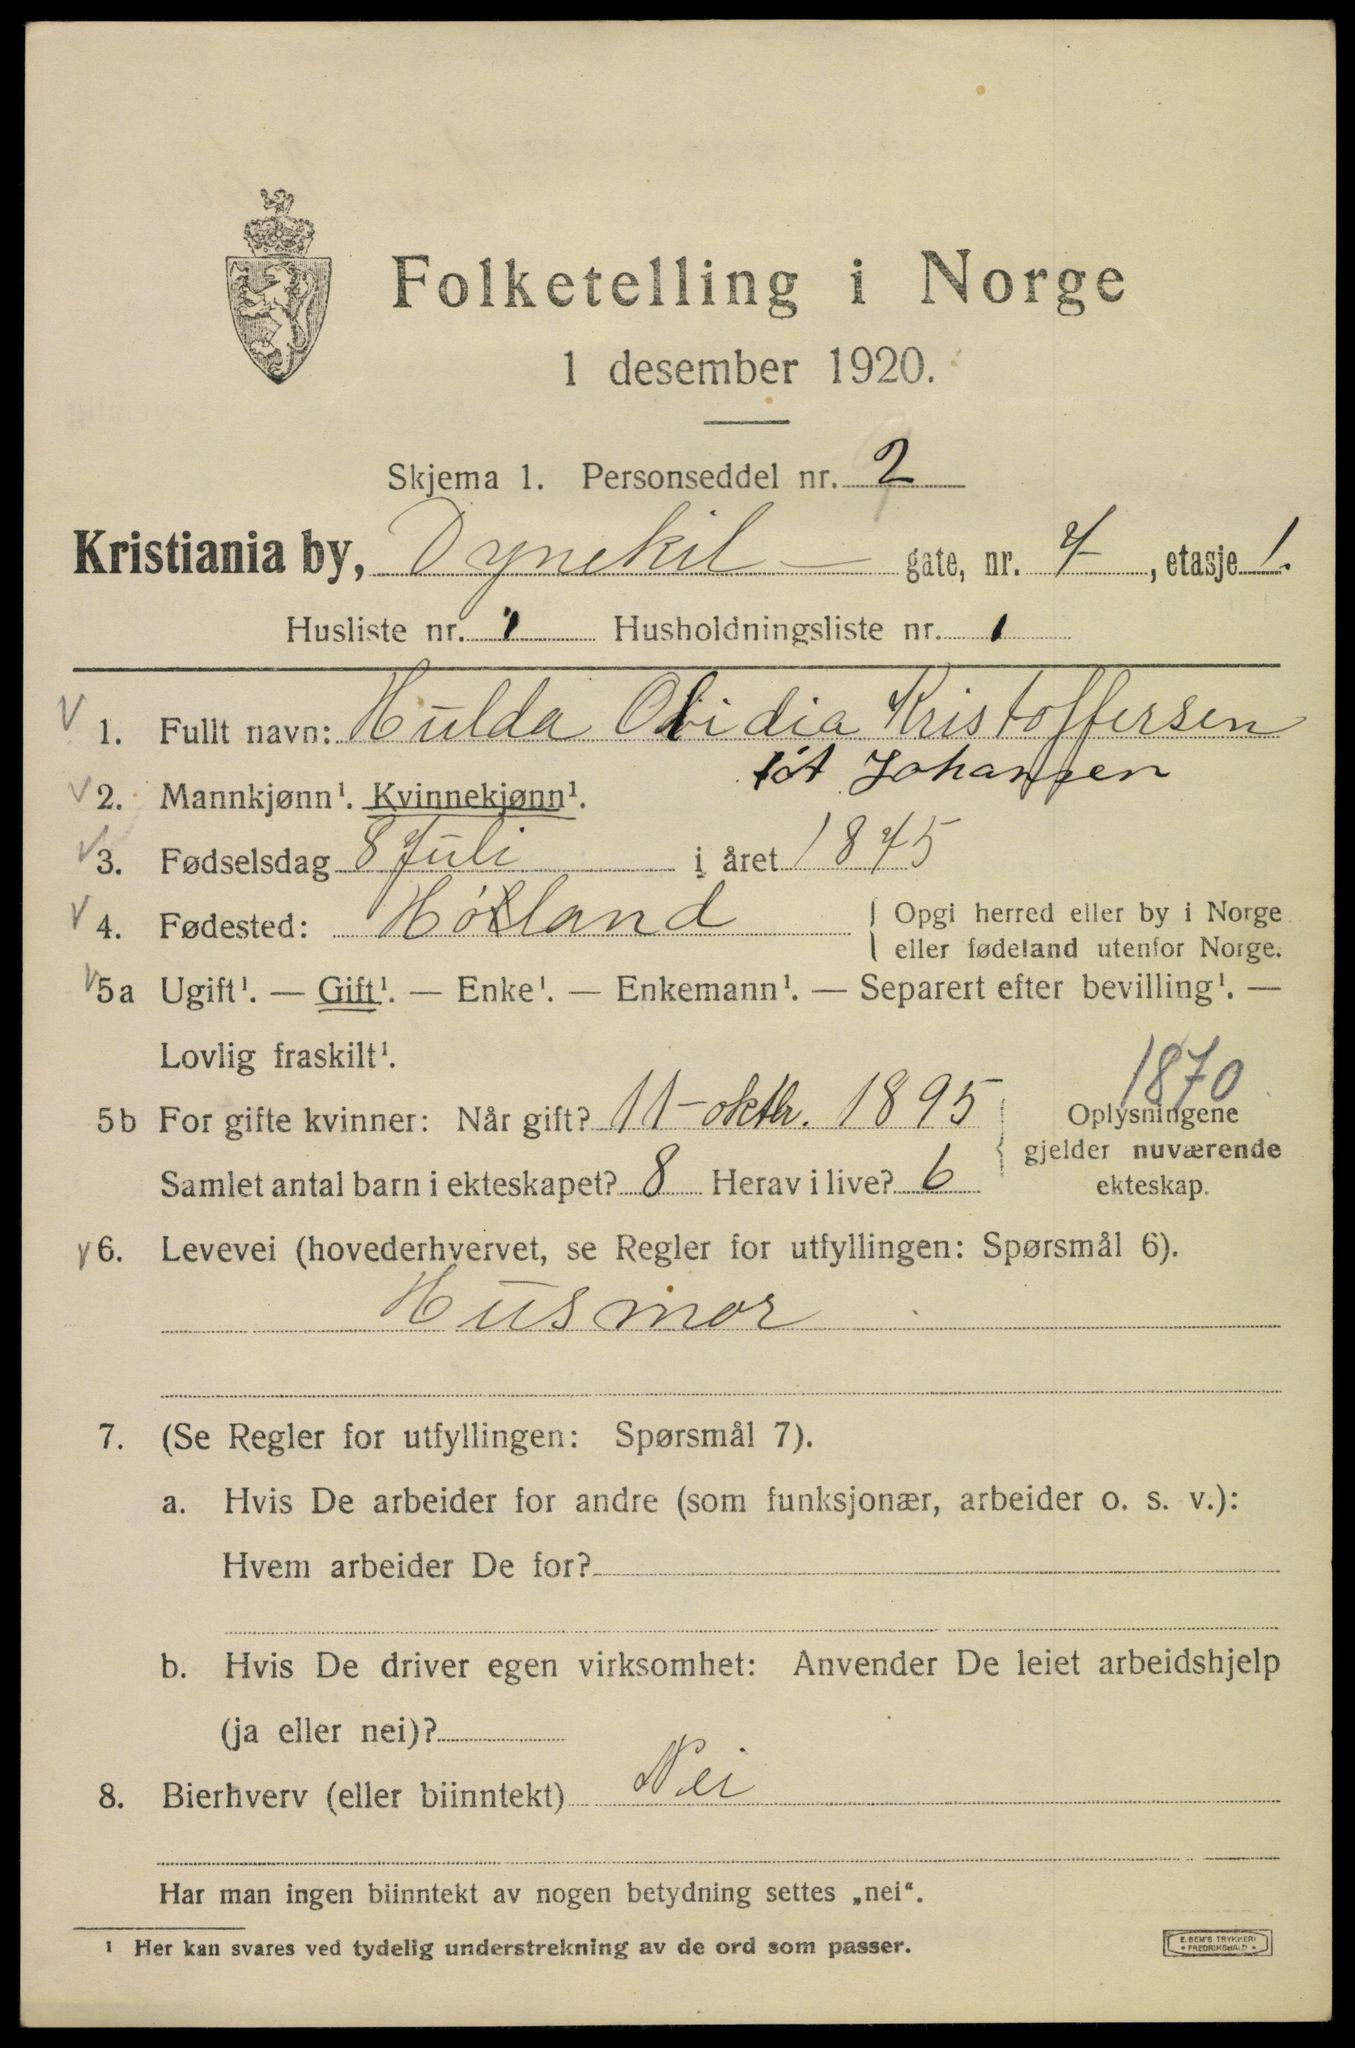 Folketelling i Norge
1 desember 1920.
Skjema 1. Personseddel nr. 2
Kristiania by, Dynekil — gate, nr. 7, etasje 1.
Husliste nr. 1 Husholdningsliste nr. 1
1. Fullt navn: Hulda Olidia Kristoffersen
føt Johansen
2. Mannkjønn¹. Kvinnekjønn¹.
3. Fødselsdag 8 Juli i året 1875
4. Fødested: Høland Opgi herred eller by i Norge
eller fødeland utenfor Norge.
5a Ugift¹. — Gift¹. — Enke¹. — Enkemann¹. — Separert efter bevilling¹. —
Lovlig fraskilt¹.
1870
5b For gifte kvinner: Når gift? 11 – oktbr. 1895 Oplysningene
gjelder nuværende
Samlet antal barn i ekteskapet? 8 Herav i live? 6 ekteskap.
6. Levevei (hovederhvervet, se Regler for utfyllingen: Spørsmål 6).
Husmor
7. (Se Regler for utfyllingen: Spørsmål 7).
a. Hvis De arbeider for andre (som funksjonær, arbeider o. s. v.):
Hvem arbeider De for?
b. Hvis De driver egen virksomhet: Anvender De leiet arbeidshjelp
(ja eller nei)?
8. Bierhverv (eller biinntekt) Nei
Har man ingen biinntekt av nogen betydning settes „nei“.
¹ Her kan svares ved tydelig understrekning av de ord som passer.
E. SEM'S TRYKKERI
FREDRIKSHALD